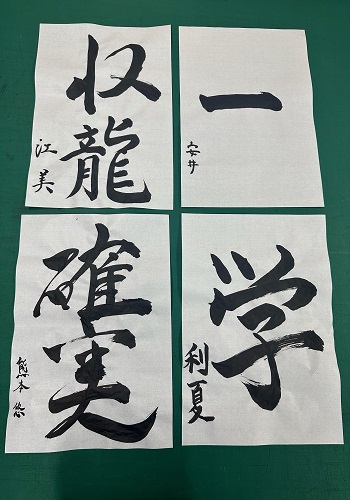 収龍
江美
一
安井
確実
熊本悠
学
利夏